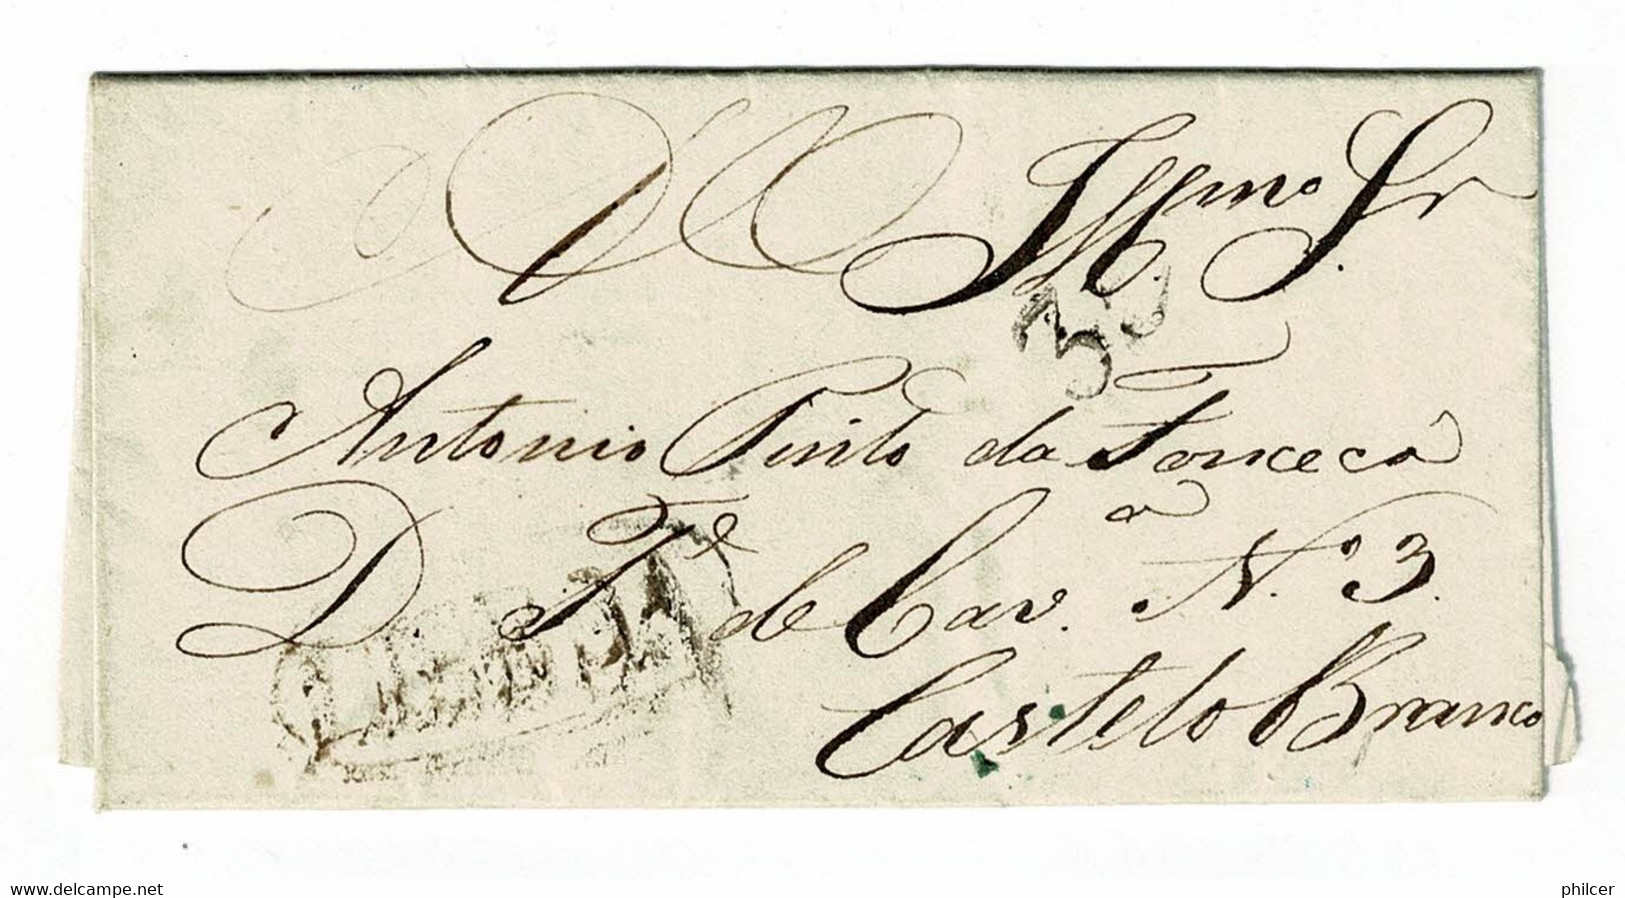 Illmo. Sr.
Antonio Pinto da Fonceca
D. Te. de Cava. No. 3.
Castelo Branco
www.delcampe.net
philcer